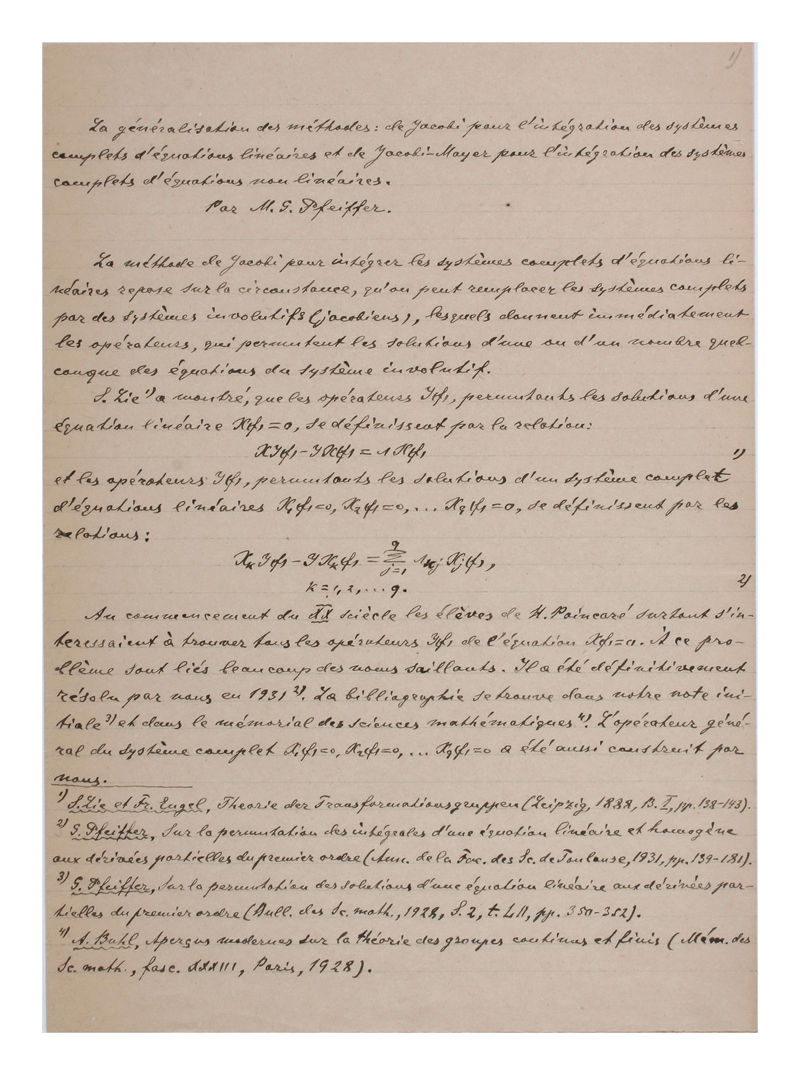 1)
La généralisation des méthodes: de Jacobi pour l'intégration des systèmes
complets d'équations linéaires et de Jacobi-Mayer pour l'intégration des systèmes
complets d'équations non linéaires.
Par M. G. Pfeiffer.
La méthode de Jacobi pour intégrer les systèmes complets d'équations li-
néaires repose sur la circonstance, qu'on peut remplacer les systèmes complets
par des systèmes involutifs (jacobiens), lesquels donnent immédiatement
les opérateurs, qui permutent les solutions d'une ou d'un nombre quel-
conque des équations du système involutif.
S. Lie¹⁾ a montré, que les opérateurs Y(f), permutants les solutions d'une
équation linéaire X(f)=0, se définissent par la relation:
XY(f)-YX(f)=λX(f) 1)
et les opérateurs Y(f), permutants les solutions d'un système complet
d'équations linéaires X₁(f)=0, X₂(f)=0, ... X_q(f)=0, se définissent par les
relations:
X_κY(f)-YX_κ(f)=∑_{j=1}^{q} λ_{κj} X_j(f),
κ=1,2,...q. 2)
Au commencement du XX siècle les élèves de H. Poincaré surtout s'in-
teressaient à trouver tous les opérateurs Y(f) de l'équation X(f)=0. À ce pro-
blème sont liés beaucoup des noms saillants. Il a été définitivement
résolu par nous en 1931²⁾. La bibliographie se trouve dans notre note ini-
tiale³⁾ et dans le mémorial des sciences mathématiques⁴⁾. L'opérateur géné-
ral du système complet X₁(f)=0, X₂(f)=0, ... X_q(f)=0 a été aussi construit par
nous.
¹⁾ S. Lie et Fr. Engel, Theorie der Transformationsgruppen (Leipzig, 1888, B. I, pp. 138-143).
²⁾ G. Pfeiffer, Sur la permutation des intégrales d'une équation linéaire et homogène
aux dérivées partielles du premier ordre (Ann. de la Fac. des Sc. de Toulouse, 1931, pp. 139-181).
³⁾ G. Pfeiffer, Sur la permutation des solutions d'une équation linéaire aux dérivées par-
tielles du premier ordre (Bull. des Sc. math., 1928, S. 2, t. LII, pp. 350-352).
⁴⁾ A. Buhl, Aperçus modernes sur la théorie des groupes continus et finis (Mém. des
Sc. math., fasc. XXXIII, Paris, 1928).